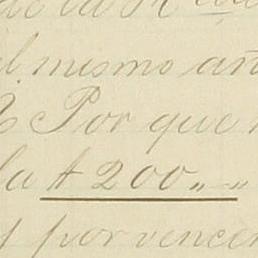 el mismo añ
Por que
la $ 200 " "
por vencer